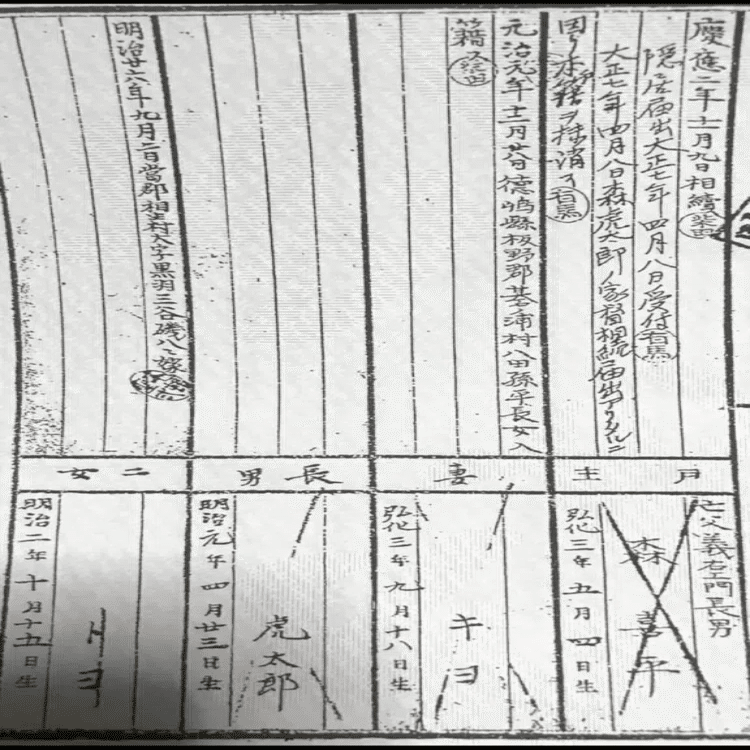 慶應二年十二月九日相續
隠居届出大正七年四月八日受付有馬
大正七年四月八日森虎太郎ノ家督相續届出アリタルニ
因リ本戸籍ヲ抹消ス有馬
戸主
亡父義右エ門長男
森喜平
弘化三年五月四日生
元治元年十二月廿日德嶋縣板野郡基浦村八田孫平長女入
籍ス
妻
キヨ
弘化三年九月十八日生
長男
虎太郎
明治元年四月廿三日生
明治廿六年九月二日當郡相生村大字黒羽三谷磯八ヘ嫁
二女
トヨ
明治二年十月十五日生